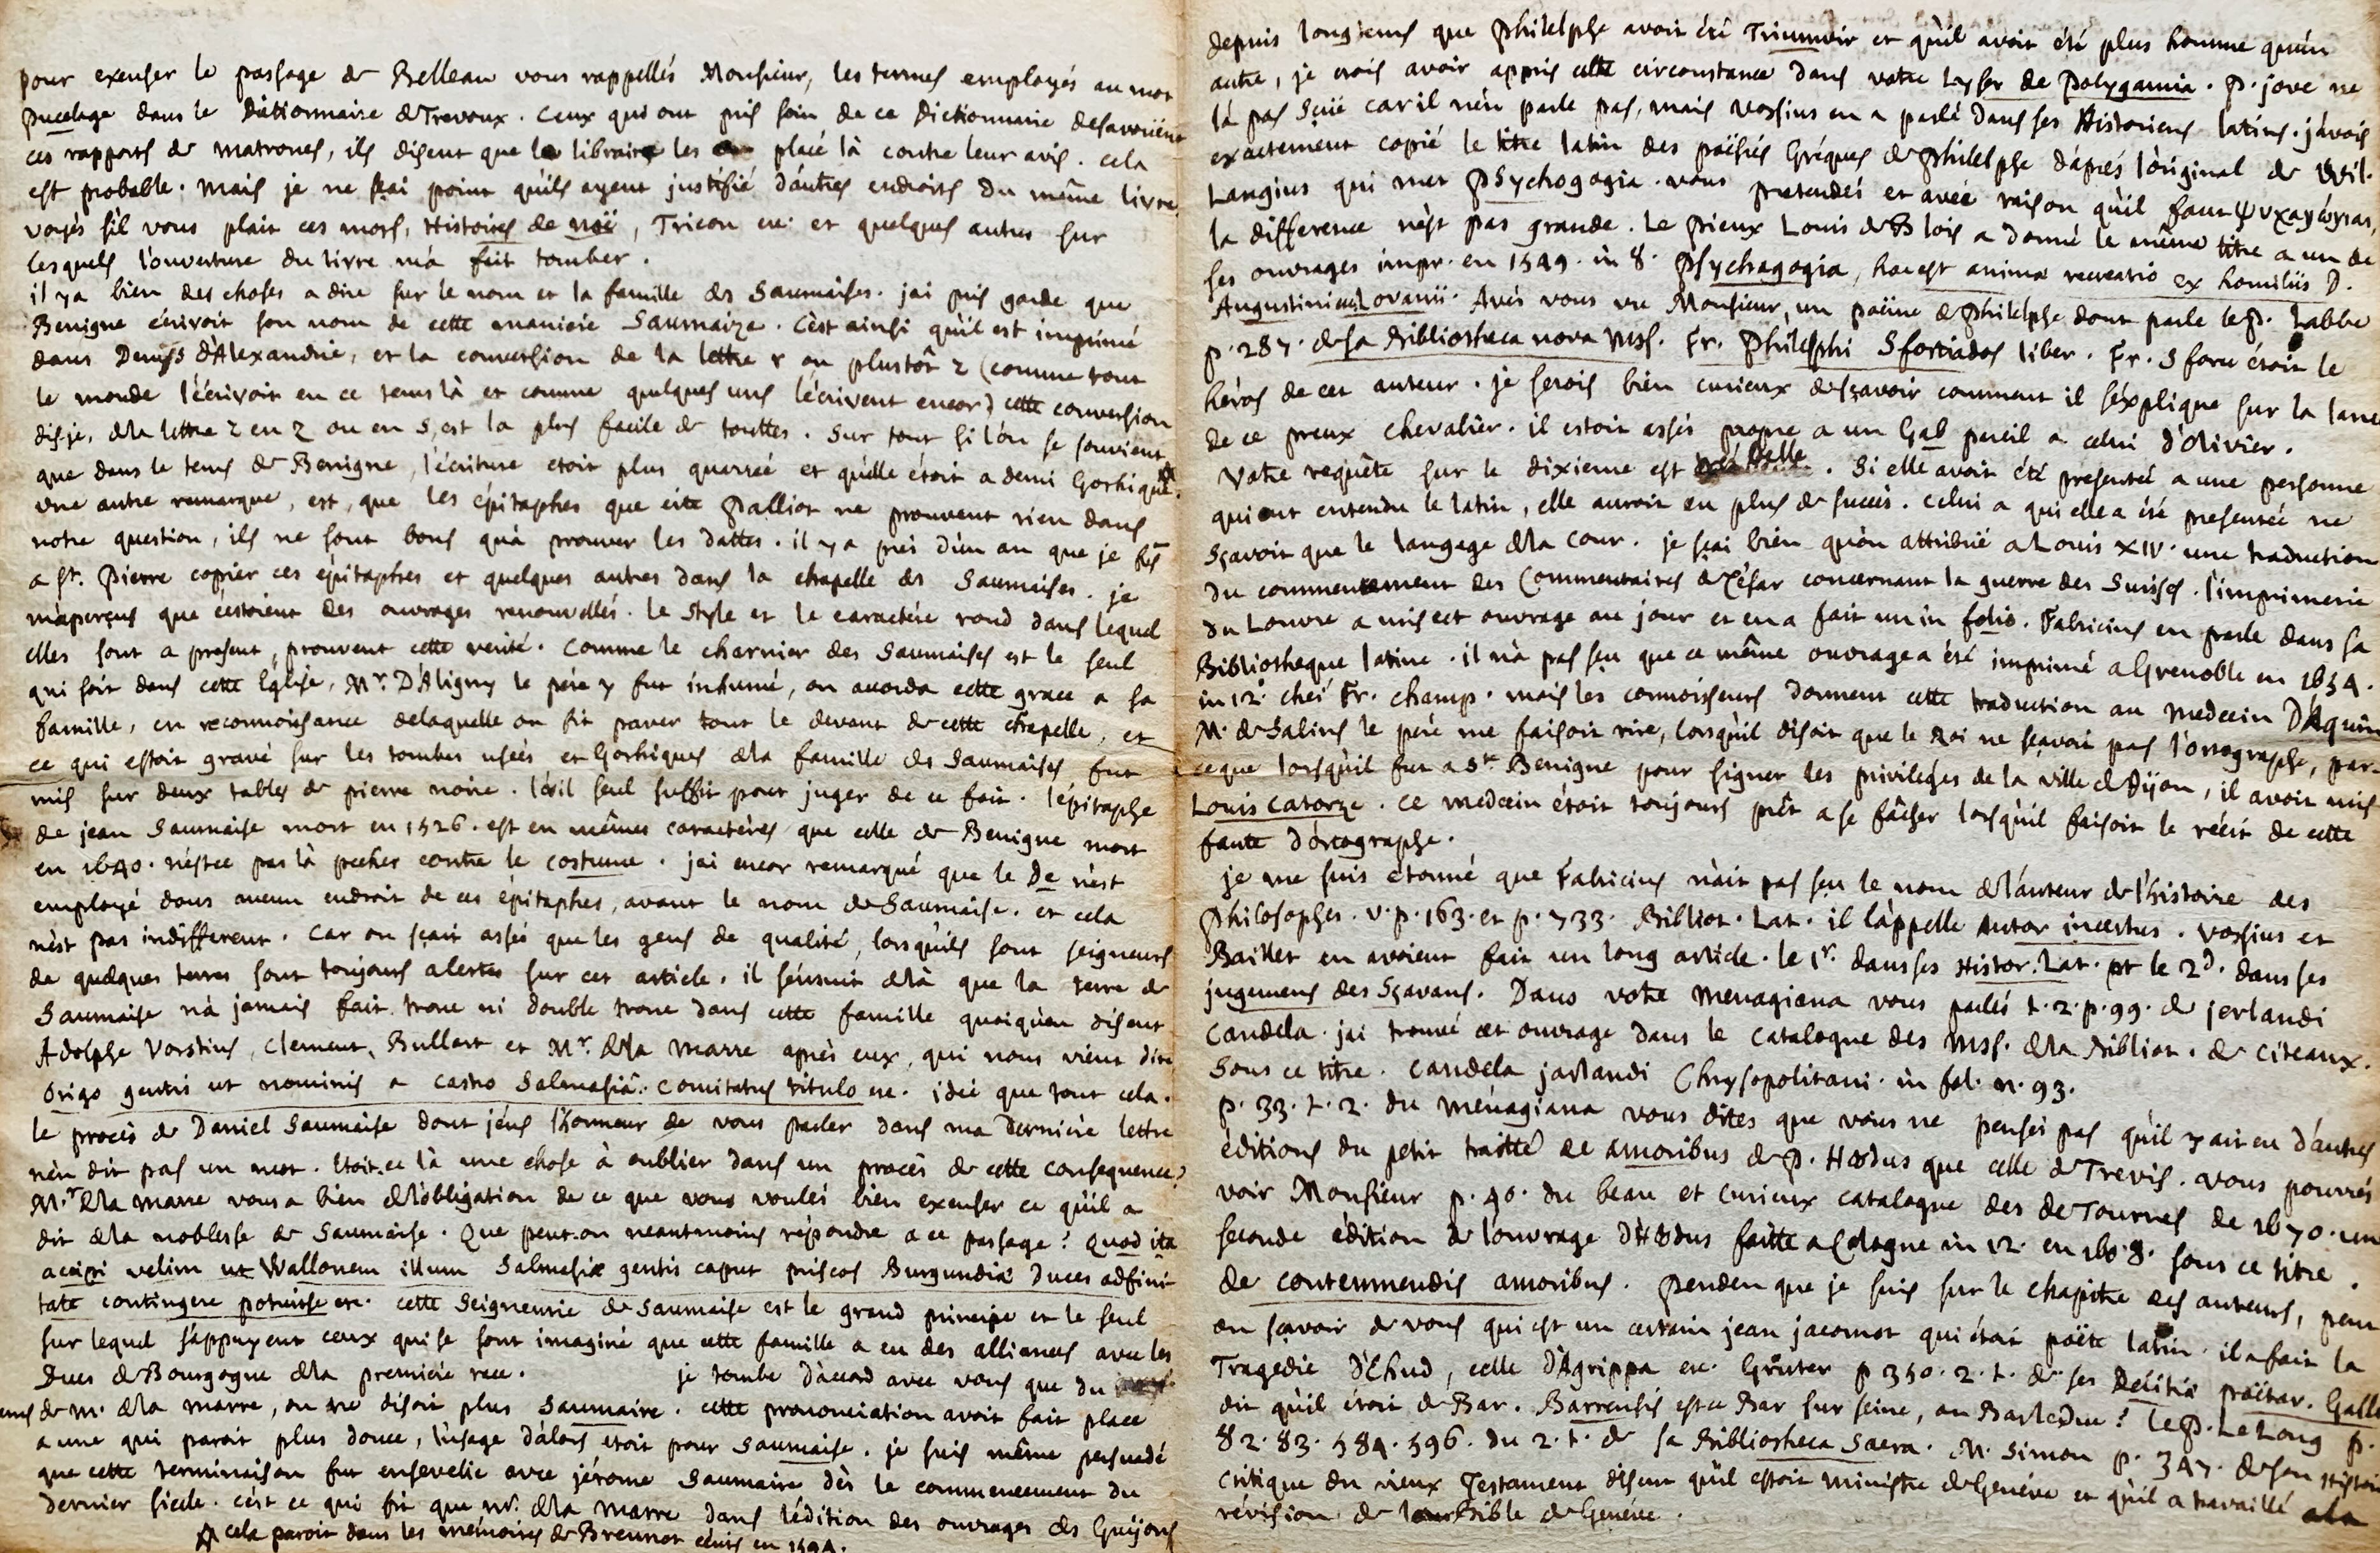 pour excuser le passage de Belleau vous rappellés Monsieur, les termes employés au mot
pucelage dans le dictionnaire de Trevoux. Ceux qui ont pris soin de ce Dictionnaire desavoüent
ces rapports de matrones, ils disent que le libraire les a placé là contre leur avis. cela
est probable. mais je ne sçai point qu'ils ayent justifié d'autres endroits du même livre.
voyés s'il vous plait ces mots, Histoires de noë, Tricon &c. et quelques autres sur
lesquels l'ouverture du livre m'a fait tomber.
il y a bien des choses a dire sur le nom et la famille des Saumaises. jai pris garde que
Benigne écrivoit son nom de cette maniere Saumaize. C'est ainsi qu'il est imprimé
dans Denys d'Alexandrie, et la conversion de la lettre r ou plustôt z (comme tout
le monde l'écrivoit en ce tems là et comme quelques uns l'écrivent encor) cette conversion
disje, de la lettre z en z ou en s, est la plus facile de touttes. Sur tout si l'on se souvient
que dans le tems de Benigne, l'écriture etoit plus quarrée et qu'elle étoit a demi Gothique.
une autre remarque, est, que les épitaphes que cite Palliot ne prouvent rien dans
notre question, ils ne sont bons qu'à prouver les dattes. il y a près d'un an que je fis
a St. Pierre copier ces épitaphes et quelques autres dans la chapelle des Saumaises. je
m'aperçus que c'estoient des ouvrages renouvellés. le style et le caractére rond dans lequel
elles sont a present, prouvent cette verité. Comme le charnier des Saumaises est le seul
qui soit dans cette Eglise, Mr. D'Aligny le père y fut inhumé, on accorda cette grace a sa
famille, en reconnoissance delaquelle on fit paver tout le devant de cette chapelle, et
ce qui estoit gravé sur les tombes usées et Gothiques de la famille des Saumaises, fut
mis sur deux tables de pierre noire. l'oeil seul suffit pour juger de ce fait. l'épitaphe
de jean Saumaise mort en 1526. est en mêmes caractéres que celle de Benigne mort
en 1640. n'estce pas là pecher contre le costume. jai encor remarqué que le De n'est
employé dans aucun endroit de ces épitaphes, avant le nom de Saumaise. et cela
n'est pas indifferent. Car on sçait assés que les gens de qualité, lorsqu'ils sont seigneurs
de quelques terres sont toujours alertes sur cet article. il s'ensuit de là que la terre de
Saumaise n'a jamais fait trone ni double trone dans cette famille quoiqu'en disent
Adolphe Vorstius, Clement, Bullart et Mr. de la Marre après eux, qui nous vient dire
origo gentis ut nominis a castro Salmasiâ. Comitatus titulo &c. idée que tout cela.
le procès de Daniel Saumaise dont j'eus l'honneur de vous parler dans ma derniere lettre
n'en dit pas un mot. Etoit-ce là une chose à oublier dans un procès de cette consequence?
Mr. de la Marre vous a bien de l'obligation de ce que vous voulés bien excuser ce qu'il a
dit de la noblesse de Saumaise. Que peut-on neantmoins répondre a ce passage? Quod ita
accipi velim ut Wallonem illum Salmasiæ gentis caput priscos Burgundiæ Duces adfini-
tate contingere potuisse &c. cette Seigneurie de Saumaise est le grand principe et le seul
sur lequel s'appuyent ceux qui se sont imaginé que cette famille a eu des alliances avec les
Ducs de Bourgogne de la premiere race. je tombe d'accord avec vous que du
tems de M. de la Marre, on ne disoit plus Saumaire. cette prononciation avoit fait place
a une qui paroit plus douce, l'usage d'alors etoit pour Saumaise. je suis même persuadé
que cette terminaison fut ensevelie avec jérome Saumaire dès le commencement du
dernier siecle. c'est ce qui fit que Mr. de la Marre dans l'édition des ouvrages des Guijons
cela paroit dans les mémoires de Breunot écrits en 1594.
depuis longtems que Philelphe avoit été Triumvir et qu'il avoit été plus homme qu'un
autre, je crois avoir appris cette circonstance dans votre Lyser de Polygamia. P. jove ne
l'a pas sçüe car il n'en parle pas, mais Vossius en a parlé dans ses Historiens latins. j'avois
exactement copié le titre latin des poësies Gréques de Philelphe d'après l'original de Wil.
Langius qui met Psychogogia. vous pretendés et avec raison qu'il faut ψυχαγωγιας,
la difference n'est pas grande. Le pieux Louis de Blois a donné le même titre a un de
ses ouvrages impr. en 1549. in 8. Psychagogia, hoc est animæ recreatio ex homiliis D.
Augustini &c. Lovanii. Avés vous vu Monsieur, un poëme de Philelphe dont parle le P. Labbe
p. 287. de sa Bibliotheca nova Mss. Fr. Philelphi Sfortiados liber. Fr. Sforce étoit le
héros de cet auteur. je serois bien curieux de sçavoir comment il s'explique sur la lance
de ce preux chevalier. il estoit assés propre a un Gab pareil a celui d'Olivier.
Votre requête sur le dixieme est belle. Si elle avoit été presentée a une personne
qui eut entendu le latin, elle auroit eu plus de succès. Celui a qui elle a été presentée ne
sçavoit que le langage de la cour. je sçai bien qu'on attribue a Louis XIV. une traduction
du commencement des Commentaires de César concernant la guerre des Suisses. l'imprimerie
du Louvre a mis cet ouvrage au jour et en a fait un in folio. Fabricius en parle dans sa
Bibliotheque latine. il n'a pas sçu que ce même ouvrage a été imprimé a Grenoble en 1654.
in 12. chés Fr. Champ. mais les connoisseurs donnent cette traduction au medecin D'Aquin
M. de Salins le père me faisoit rire, lorsqu'il disoit que le Roi ne sçavoit pas l'ortographe, par-
ceque lorsqu'il fut a St. Benigne pour signer les privileges de la ville de Dijon, il avoit mis
Louis Catorze. Ce medecin étoit toujours prêt a se fâcher lorsqu'il faisoit le récit de cette
faute d'ortographe.
je me suis étonné que Fabricius n'ait pas sçu le nom de l'auteur de l'histoire des
Philosophes. v. p. 163. et p. 733. Bibliot. Lat. il l'appelle Autor incertus. Vossius et
Baillet en avoient fait un long article. le 1r. dans ses Histor. Lat. et le 2d. dans ses
jugemens des Sçavans. Dans votre Menagiana vous parlés t. 2. p. 99. de jerlandi
Candela. jai trouvé cet ouvrage dans le catalogue des Mss. de la Bibliot. de Citeaux.
Sous ce titre. Candela jarlandi Chrysopolitani. in fol. n. 93.
p. 33. t. 2. du Menagiana vous dites que vous ne pensés pas qu'il y ait eu d'autres
éditions du petit traitté de amoribus de P. Hœdus que celle de Trevis. Vous pourrés
voir Monsieur p. 40. du beau et curieux catalogue des de Tournes de 1670. une
seconde édition de l'ouvrage d'Hœdus faitte a Cologne in 12. en 1608. sous ce titre.
de contemnendis amoribus. Penden que je suis sur le chapitre des auteurs, peut
on sçavoir de vous qui est un certain jean jacomot qui étoit poëte latin. il a fait la
Tragedie d'Ehud, celle d'Agrippa &c. Gruter p 350. 2. t. de ses Delitiæ poëtar. Gallor.
dit qu'il étoit de Bar. Barrensis est-ce Bar sur seine, ou Barleduc? Le P. Le Long p.
82. 83. 584. 596. du 2. t. de sa Bibliotheca Sacra. M. Simon p. 347. de son Histoire
critique du vieux Testament disent qu'il estoit ministre de Genéve et qu'il a travaillé a la
révision de la Bible de Genéve.